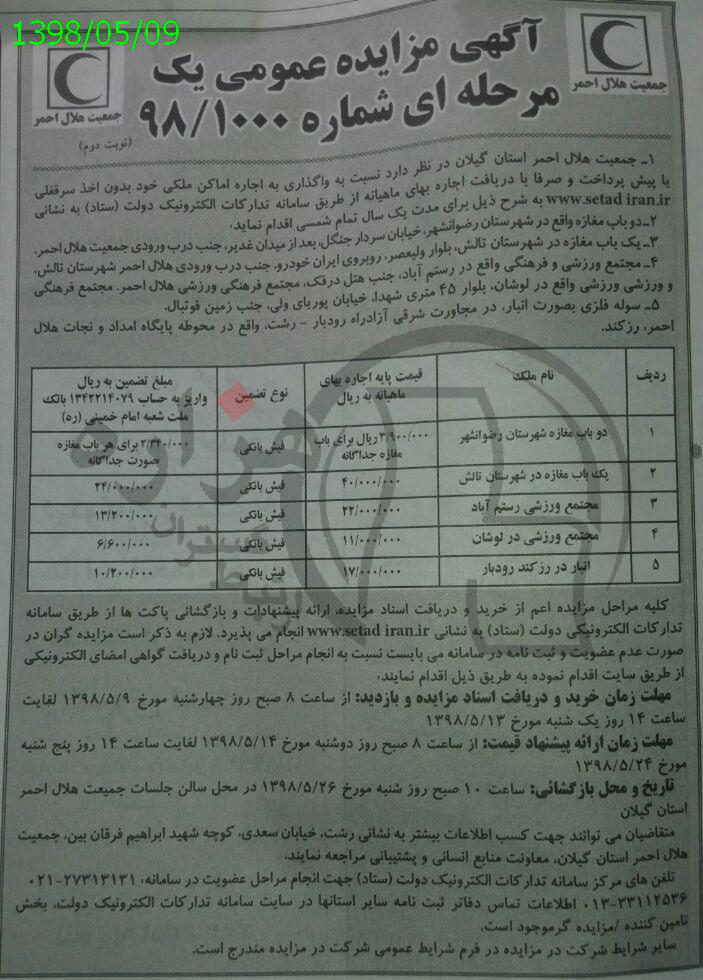 1398/05/09
جمعیت هلال احمر
جمعیت هلال احمر
آگهی مزایده عمومی یک
مرحله ای شماره ۹۸/۱۰۰۰
(نوبت دوم)
۱ـ جمعیت هلال احمر استان گیلان در نظر دارد نسبت به واگذاری به اجاره اماکن ملکی خود بدون اخذ سرقفلی
یا پیش پرداخت و صرفا با دریافت اجاره بهای ماهیانه از طریق سامانه تدارکات الکترونیک دولت (ستاد) به نشانی
www.setad iran.ir به شرح ذیل برای مدت یک سال تمام شمسی اقدام نماید.
۲ـ دو باب مغازه واقع در شهرستان رضوانشهر، خیابان سردار جنگل، بعد از میدان غدیر، جنب درب ورودی جمعیت هلال احمر.
۳ـ یک باب مغازه در شهرستان تالش، بلوار ولیعصر، روبروی ایران خودرو، جنب درب ورودی هلال احمر شهرستان تالش.
۴ـ مجتمع ورزشی و فرهنگی واقع در رستم آباد، جنب هتل درفک، مجتمع فرهنگی ورزشی هلال احمر. مجتمع فرهنگی
و ورزشی ورزشی واقع در لوشان، بلوار ۴۵ متری شهدا، خیابان پوریای ولی، جنب زمین فوتبال.
۵ـ سوله فلزی بصورت انبار، در مجاورت شرقی آزادراه رودبار - رشت، واقع در محوطه پایگاه امداد و نجات هلال
احمر، رزکند.
ردیف نام ملک قیمت پایه اجاره بهای ماهیانه به ریال نوع تضمین مبلغ تضمین به ریال واریز به حساب ۱۳۴۲۲۱۴۰۷۹ بانک ملت شعبه امام خمینی (ره)
۱ دو باب مغازه شهرستان رضوانشهر ۳/۹۰۰/۰۰۰ ریال برای باب مغازه جداگانه فیش بانکی ۲/۳۴۰/۰۰۰ برای هر باب مغازه بصورت جداگانه
۲ یک باب مغازه در شهرستان تالش ۴۰/۰۰۰/۰۰۰ فیش بانکی ۲۴/۰۰۰/۰۰۰
۳ مجتمع ورزشی رستم آباد ۲۲/۰۰۰/۰۰۰ فیش بانکی ۱۳/۲۰۰/۰۰۰
۴ مجتمع ورزشی در لوشان ۱۱/۰۰۰/۰۰۰ فیش بانکی ۶/۶۰۰/۰۰۰
۵ انبار در رزکند رودبار ۱۷/۰۰۰/۰۰۰ فیش بانکی ۱۰/۲۰۰/۰۰۰
کلیه مراحل مزایده اعم از خرید و دریافت اسناد مزایده، ارائه پیشنهادات و بازگشائی پاکت ها از طریق سامانه
تدارکات الکترونیکی دولت (ستاد) به نشانی www.setad iran.ir انجام می پذیرد. لازم به ذکر است مزایده گران در
صورت عدم عضویت و ثبت نامه در سامانه می بایست نسبت به انجام مراحل ثبت نام و دریافت گواهی امضای الکترونیکی
از طریق سایت اقدام نموده به طریق ذیل اقدام نمایند.
مهلت زمان خرید و دریافت اسناد مزایده و بازدید: از ساعت ۸ صبح روز چهارشنبه مورخ ۱۳۹۸/۵/۹ لغایت
ساعت ۱۴ روز یک شنبه مورخ ۱۳۹۸/۵/۱۳
مهلت زمان ارائه پیشنهاد قیمت: از ساعت ۸ صبح روز دوشنبه مورخ ۱۳۹۸/۵/۱۴ لغایت ساعت ۱۴ روز پنج شنبه
مورخ ۱۳۹۸/۵/۲۴
تاریخ و محل بازگشائی: ساعت ۱۰ صبح روز شنبه مورخ ۱۳۹۸/۵/۲۶ در محل سالن جلسات جمیعت هلال احمر
استان گیلان
متقاضیان می توانند جهت کسب اطلاعات بیشتر به نشانی رشت، خیابان سعدی، کوچه شهید ابراهیم فرقان بین، جمعیت
هلال احمر استان گیلان، معاونت منابع انسانی و پشتیبانی مراجعه نمایند.
تلفن های مرکز سامانه تدارکات الکترونیک دولت (ستاد) جهت انجام مراحل عضویت در سامانه، ۲۷۳۱۳۱۳۱-۰۲۱
۰۱۳-۳۳۱۱۲۵۳۶ اطلاعات تماس دفاتر ثبت نامه سایر استانها در سایت سامانه تدارکات الکترونیک دولت، بخش
تامین کننده /مزایده گرموجود است.
سایر شرایط شرکت در مزایده در فرم شرایط عمومی شرکت در مزایده مندرج است.